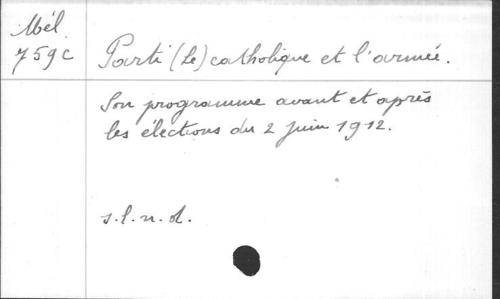 Mél.
759c
Parti (Le) catholique et l'armée.
Son programme avant et après
les élections du 2 juin 1912.
s.l.n.d.